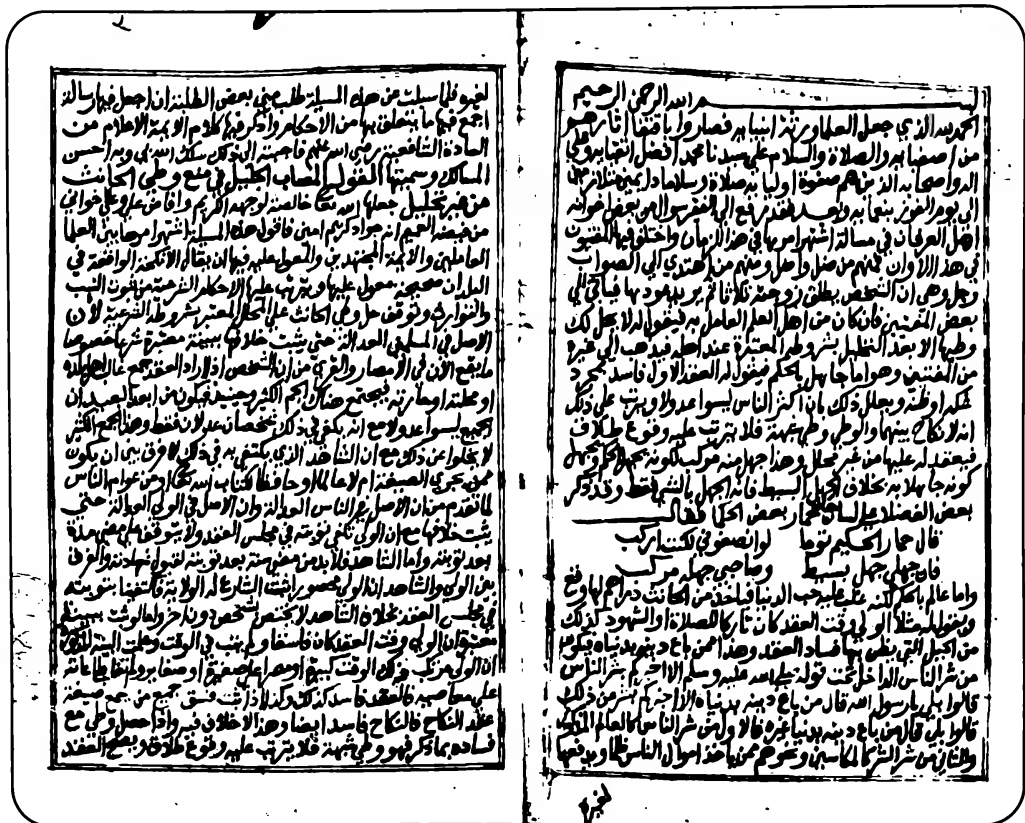 بسم الله الرحمن الرحيم
الحمد لله الذي جعل العلماء ورثة انبيائه فصاروا باقتفاء اثارهم
من اصفيائه والصلاة والسلام على سيدنا محمد افضل انبيائه وعلى
اله واصحابه الذين هم صفوة اوليائه صلاة وسلاما دايمين متلازمين
الى يوم الفوز بنعمائه وبعد فقد رفع الي الفقير سوال من بعض اخوانه
اهل العرفان في مسالة اشتهر امرها في هذا الزمان واختلف فيها المفتون
في هذا الاوان فمنهم من ضل واضل ومنهم من اهتدى الى الصواب
وجل وهي ان الشخص يطلق زوجته ثلاثا ثم يريد عودها فياتي الى
بعض المفتين فان كان من اهل العلم العامل به فيقول له لا يحل لك
وطيها الا بعد التحليل بشروطه المعتبرة عند اهله فيذهب الى غيره
من المفتين وهو اما جاهل بالحكم فيقول له العقد الاول فاسد بمجرد
شكه او ظنه ويعلل ذلك بان اكثر الناس ليسوا عدولا ويرتب على ذلك
انه لا نكاح بينهما والوطي وطي شبهة فلا يترتب عليه وقوع طلاق
فيعقد له عليها من غير محلل وهذا جهل منه مركب لكونه يجهل الحكم ويجهل
كونه جاهلا به بخلاف الجهل البسيط فانه الجهل بالشي فقط وقد ذكر
بعض الفضلا على لسان حمار بعض الحكما فقال
قال حمار الحكيم توما لو انصفوني لكنت اركب
فان جهلي جهل بسيط وصاحبي جهله مركب
واما عالم بالحكم لكنه غلب عليه حب الدنيا فياخذ من الحانث دراهم لها وقع
ويقول له مثلا الولي وقت العقد كان تاركا للصلاة والشهود كذلك
من الحيل التي يظن بها فساد العقد وهذا ممن باع دينه بدنياه فيكون
من شر الناس الداخل تحت قوله صلى الله عليه وسلم الا اخبركم بشر الناس
قالوا بلى يا رسول الله قال من باع دينه بدنياه الا اخبركم بشر من ذلك
قالوا بلى قال من باع دينه بدنيا غيره فالاول من شر الناس كالعالم المذكور
والثاني من شر الشر كالمكاسين ونحوهم ممن ياخذ اموال الناس ظلما ويدفعها
لغيره
لغيره فلما سيلت عن هذه المسيلة طلب مني بعض الطلبة ان اجعل فيها رسالة
اجمع فيها ما يتعلق بها من الاحكام واذكر فيها كلام الايمة الاعلام من
السادة الشافعية رضي الله عنهم فاجبته الى ذلك سلك الله بي وبه احسن
المسالك وسميتها القول المصاب الجليل في منع وطي الحانث
من غير تحليل جعلها الله تعالى خالصة لوجهه الكريم وافاض علي وعلى اخواني
من فيضه العميم انه جواد كريم امين فاقول هذه المسيلة اشتهر امرها بين العلما
العاملين والايمة المجتهدين والمعول عليه فيها ان يقال الانكحة الواقعة في
البلدان صحيحة معول عليها ويترتب عليها الاحكام الشرعية من ثبوت النسب
والتوارث وتوقف حل وطي الحانث على المحلل المعتبر بشروطه الشرعية لان
الاصل في المسلمين العدالة حتى يثبت خلافه ببينة معتبرة شرعا خصوصا
ما يقع الان في الامصار والقرى من ان الشخص اذا اراد العقد جمع غالب اهل بلده
او محلته او حارته فيجتمع هناك الجم الكثير وحينيذ فيكون من ابعد البعيد ان
الجميع ليسوا عدولا مع انه يكفي في ذلك شخصان عدلان فقط وهذا الجمع الكثير
لا يخلو عن ذلك مع ان الشاهد الذي يكتفى به في ذلك لا فرق بين ان يكون
ممن يجري الصيغة ام لا عالما او حافظا لكتاب الله تعالى او من عوام الناس
لما تقدم من ان الاصل في الناس العدالة وان الاصل في الولي العدالة حتى
يثبت خلافها مع ان الولي تكفي توبته في مجلس العقد ولا يتوقف على مضي مدة
بعد توبته واما الشاهد فلا بد من مضي سنة بعد توبته لقبول شهادته والفرق
بين الولي والشاهد ان الولي محصور اثبت الشارع له الولاية فاكتفينا بتوبته
في مجلس العقد بخلاف الشاهد لا يختص بشخص دون اخر ولو ثبت ببينة
معتبرة ان الولي وقت العقد كان فاسقا ولم يتب في الوقت وعلمت البينة
ان الولي مرتكب في ذلك الوقت كبيرة او مصر على صغيرة او صغاير ولم تغلب طاعاته
على معاصيه فالعقد فاسد كذلك وكذا اذا ثبت فسق جميع من سمع صيغة
عقد النكاح فالنكاح فاسد ايضا وهذا لا خلاف فيه واذا حصل وطي مع
فساده بما ذكر فهو وطي شبهة فلا يترتب عليه وقوع طلاق ويصح العقد